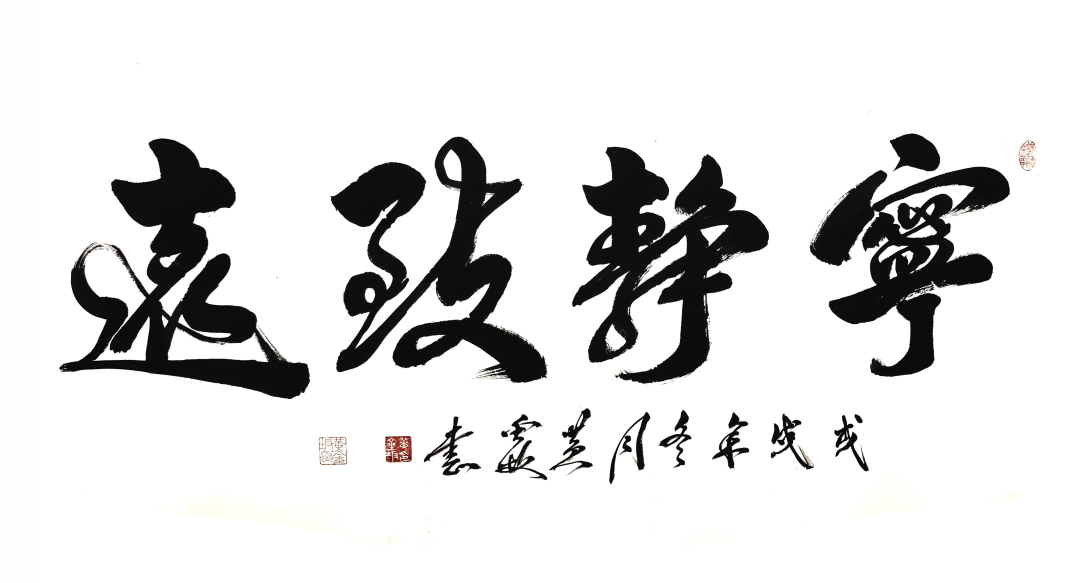 寧靜致遠
戊戌年冬月黄書